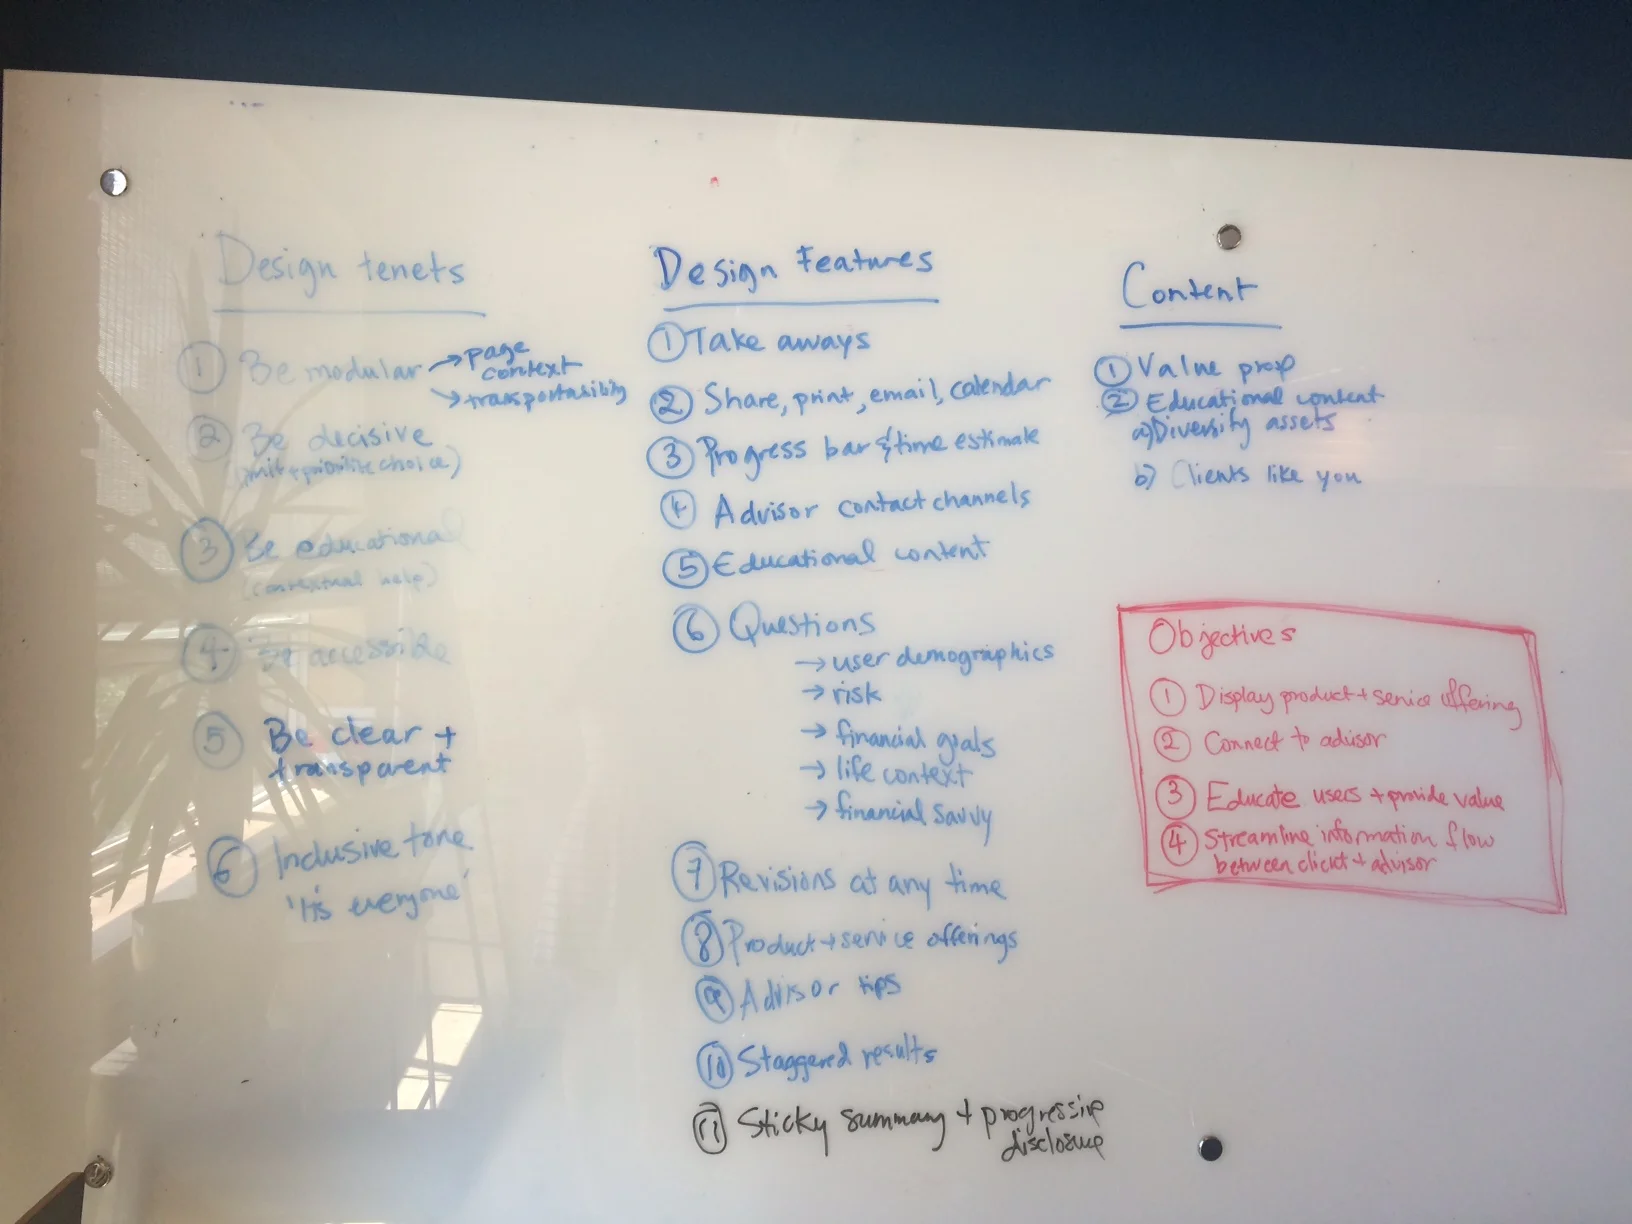 Design tenets
① Be modular → page context
→ transportability
② Be decisive
(limit + prioritize choice)
③ Be educational
(contextual help)
④ Be accessible
⑤ Be clear +
transparent
⑥ Inclusive tone
'its everyone'
Design Features
① Take aways
② Share, print, email, calendar
③ Progress bar & time estimate
④ Advisor contact channels
⑤ Educational content
⑥ Questions
→ user demographics
→ risk
→ financial goals
→ life context
→ financial savvy
⑦ Revisions at any time
⑧ Product + service offerings
⑨ Advisor tips
⑩ Staggered results
⑪ Sticky summary + progressive
disclosure
Content
① Value prop
② Educational content
a) Diversity assets
b) Clients like you
Objectives
① Display product + service offering
② Connect to advisor
③ Educate users + provide value
④ Streamline information flow
between client + advisor